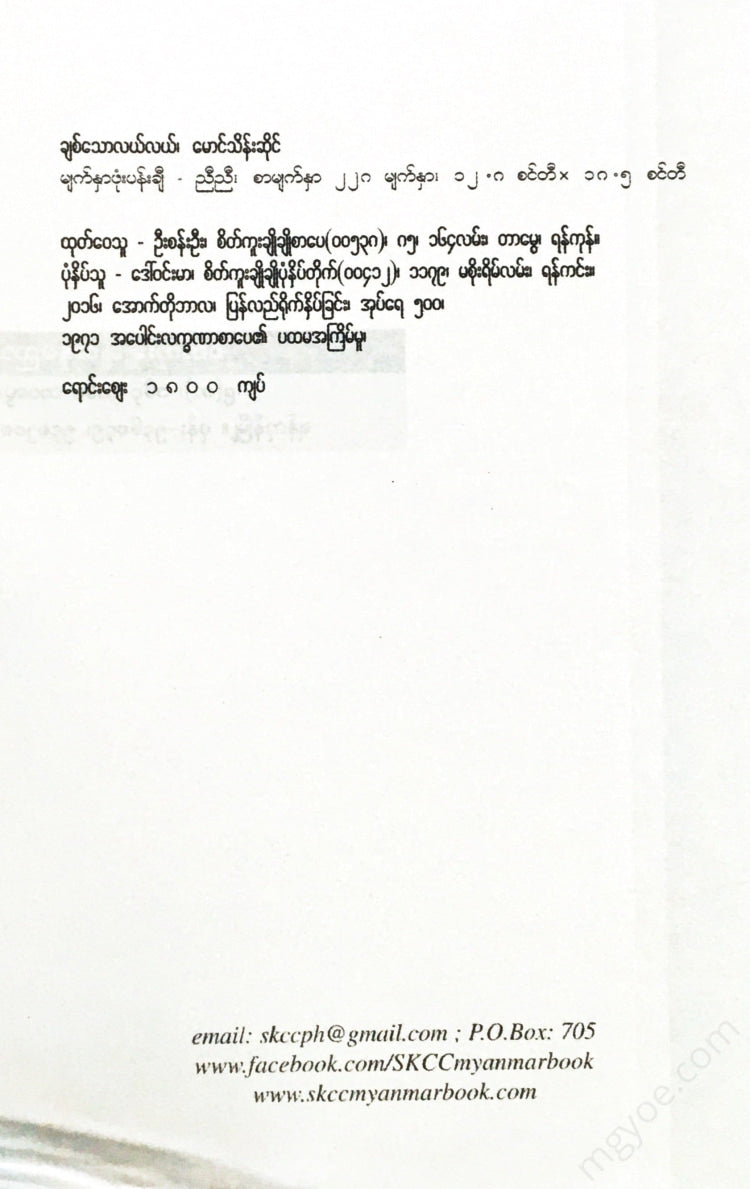 ချစ်သောလယ်လယ်၊ မောင်သိန်းဆိုင်
မျက်နှာဖုံးပန်းချီ - ညီညီ၊ စာမျက်နှာ ၂၂၈ မျက်နှာ၊ ၁၂.၈ စင်တီ× ၁၈.၅ စင်တီ
ထုတ်ဝေသူ - ဦးစန်းဦး၊ စိတ်ကူးချိုချိုစာပေ(၀၀၅၃၈)၊ ၈၅၊ ၁၆၄လမ်း၊ တာမွေ၊ ရန်ကုန်။
ပုံနှိပ်သူ - ဒေါ်ဝင်းမာ၊ စိတ်ကူးချိုချိုပုံနှိပ်တိုက်(၀၀၄၁၂)၊ ၁၁၇၉၊ မစိုးရိမ်လမ်း၊ ရန်ကင်း။
၂၀၁၆၊ အောက်တိုဘာလ၊ ပြန်လည်ရိုက်နှိပ်ခြင်း၊ အုပ်ရေ ၅၀၀၊
၁၉၇၁ အပေါင်းလက္ခဏာစာပေ၏ ပထမအကြိမ်မူ၊
ရောင်းဈေး ၁ ၈ ၀ ၀ ကျပ်
email: skccph@gmail.com ; P.O.Box: 705
www.facebook.com/SKCCmyanmarbook
www.skccmyanmarbook.com
mgyoe.com